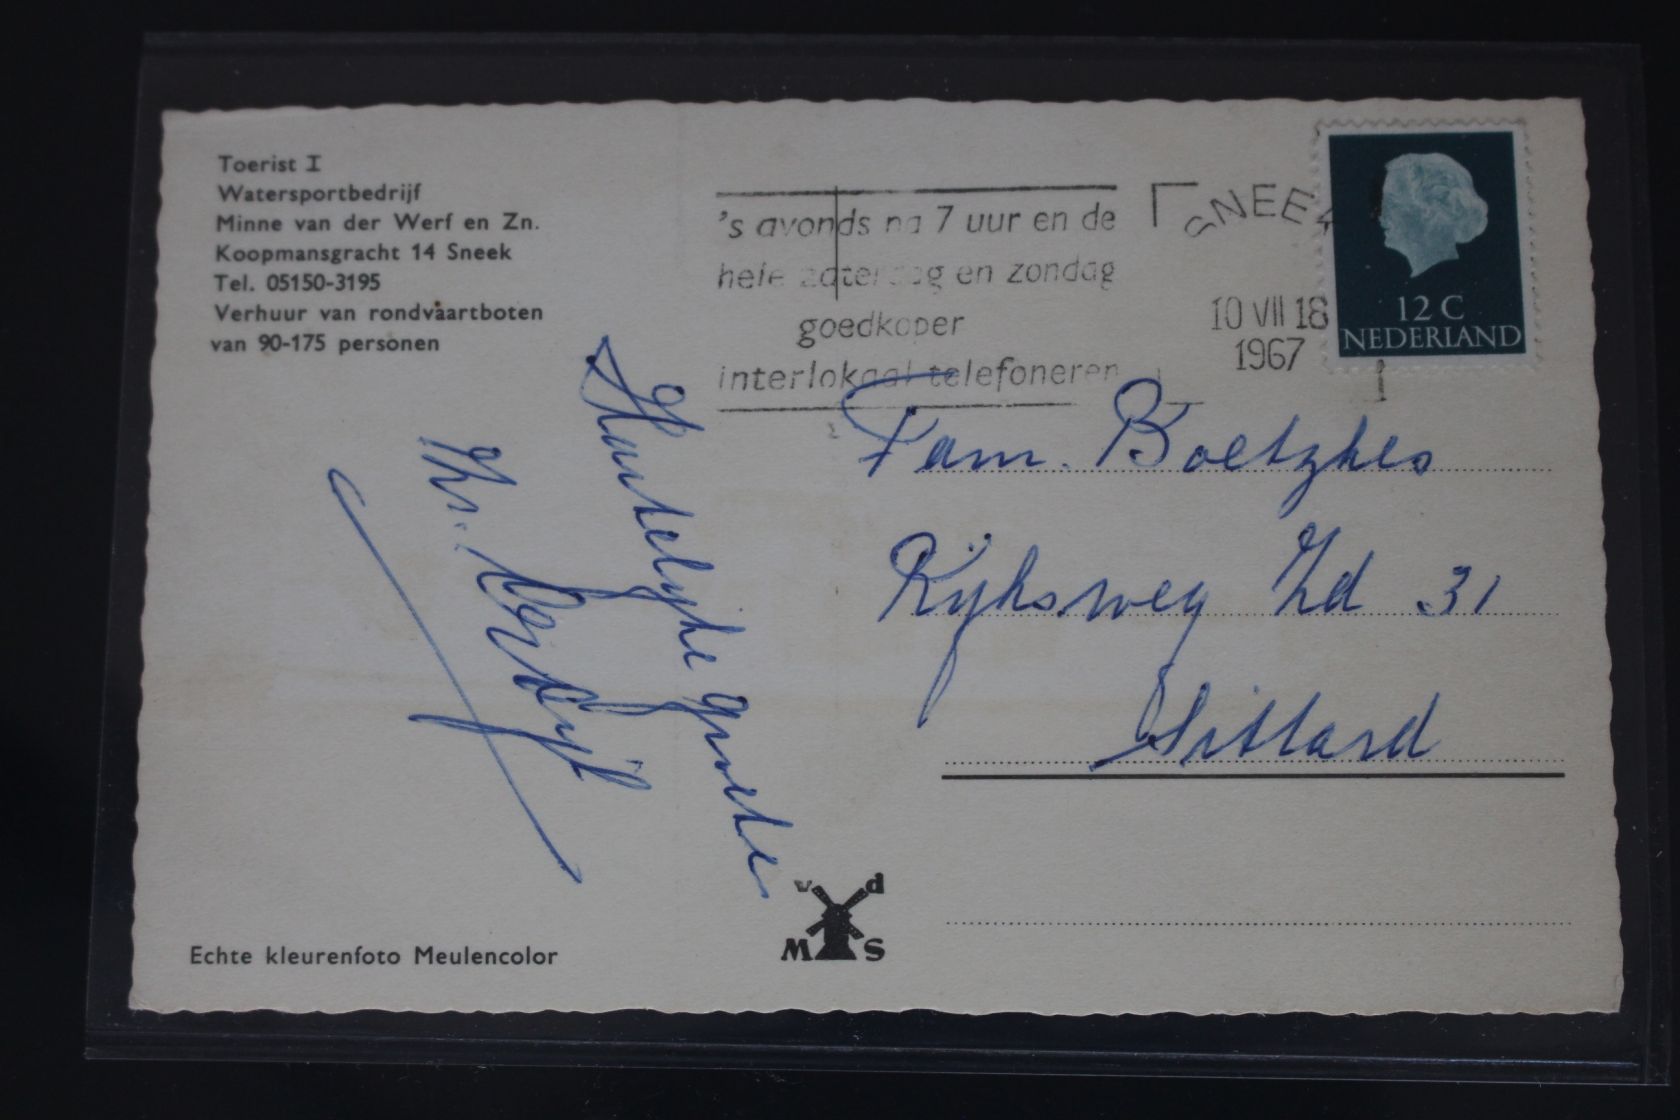 Toerist I
Watersportbedrijf
Minne van der Werf en Zn.
Koopmansgracht 14 Sneek
Tel. 05150-3195
Verhuur van rondvaartboten
van 90-175 personen
's avonds na 7 uur en de
hele zaterdag en zondag
goedkoper
interlokaal telefoneren
SNEEK
10 VII 18
1967
12 C
NEDERLAND
Hartelyke groete
Fam. Boetzkes
Rijksweg Zd 31
Sittard
Echte kleurenfoto Meulencolor
v d
M S